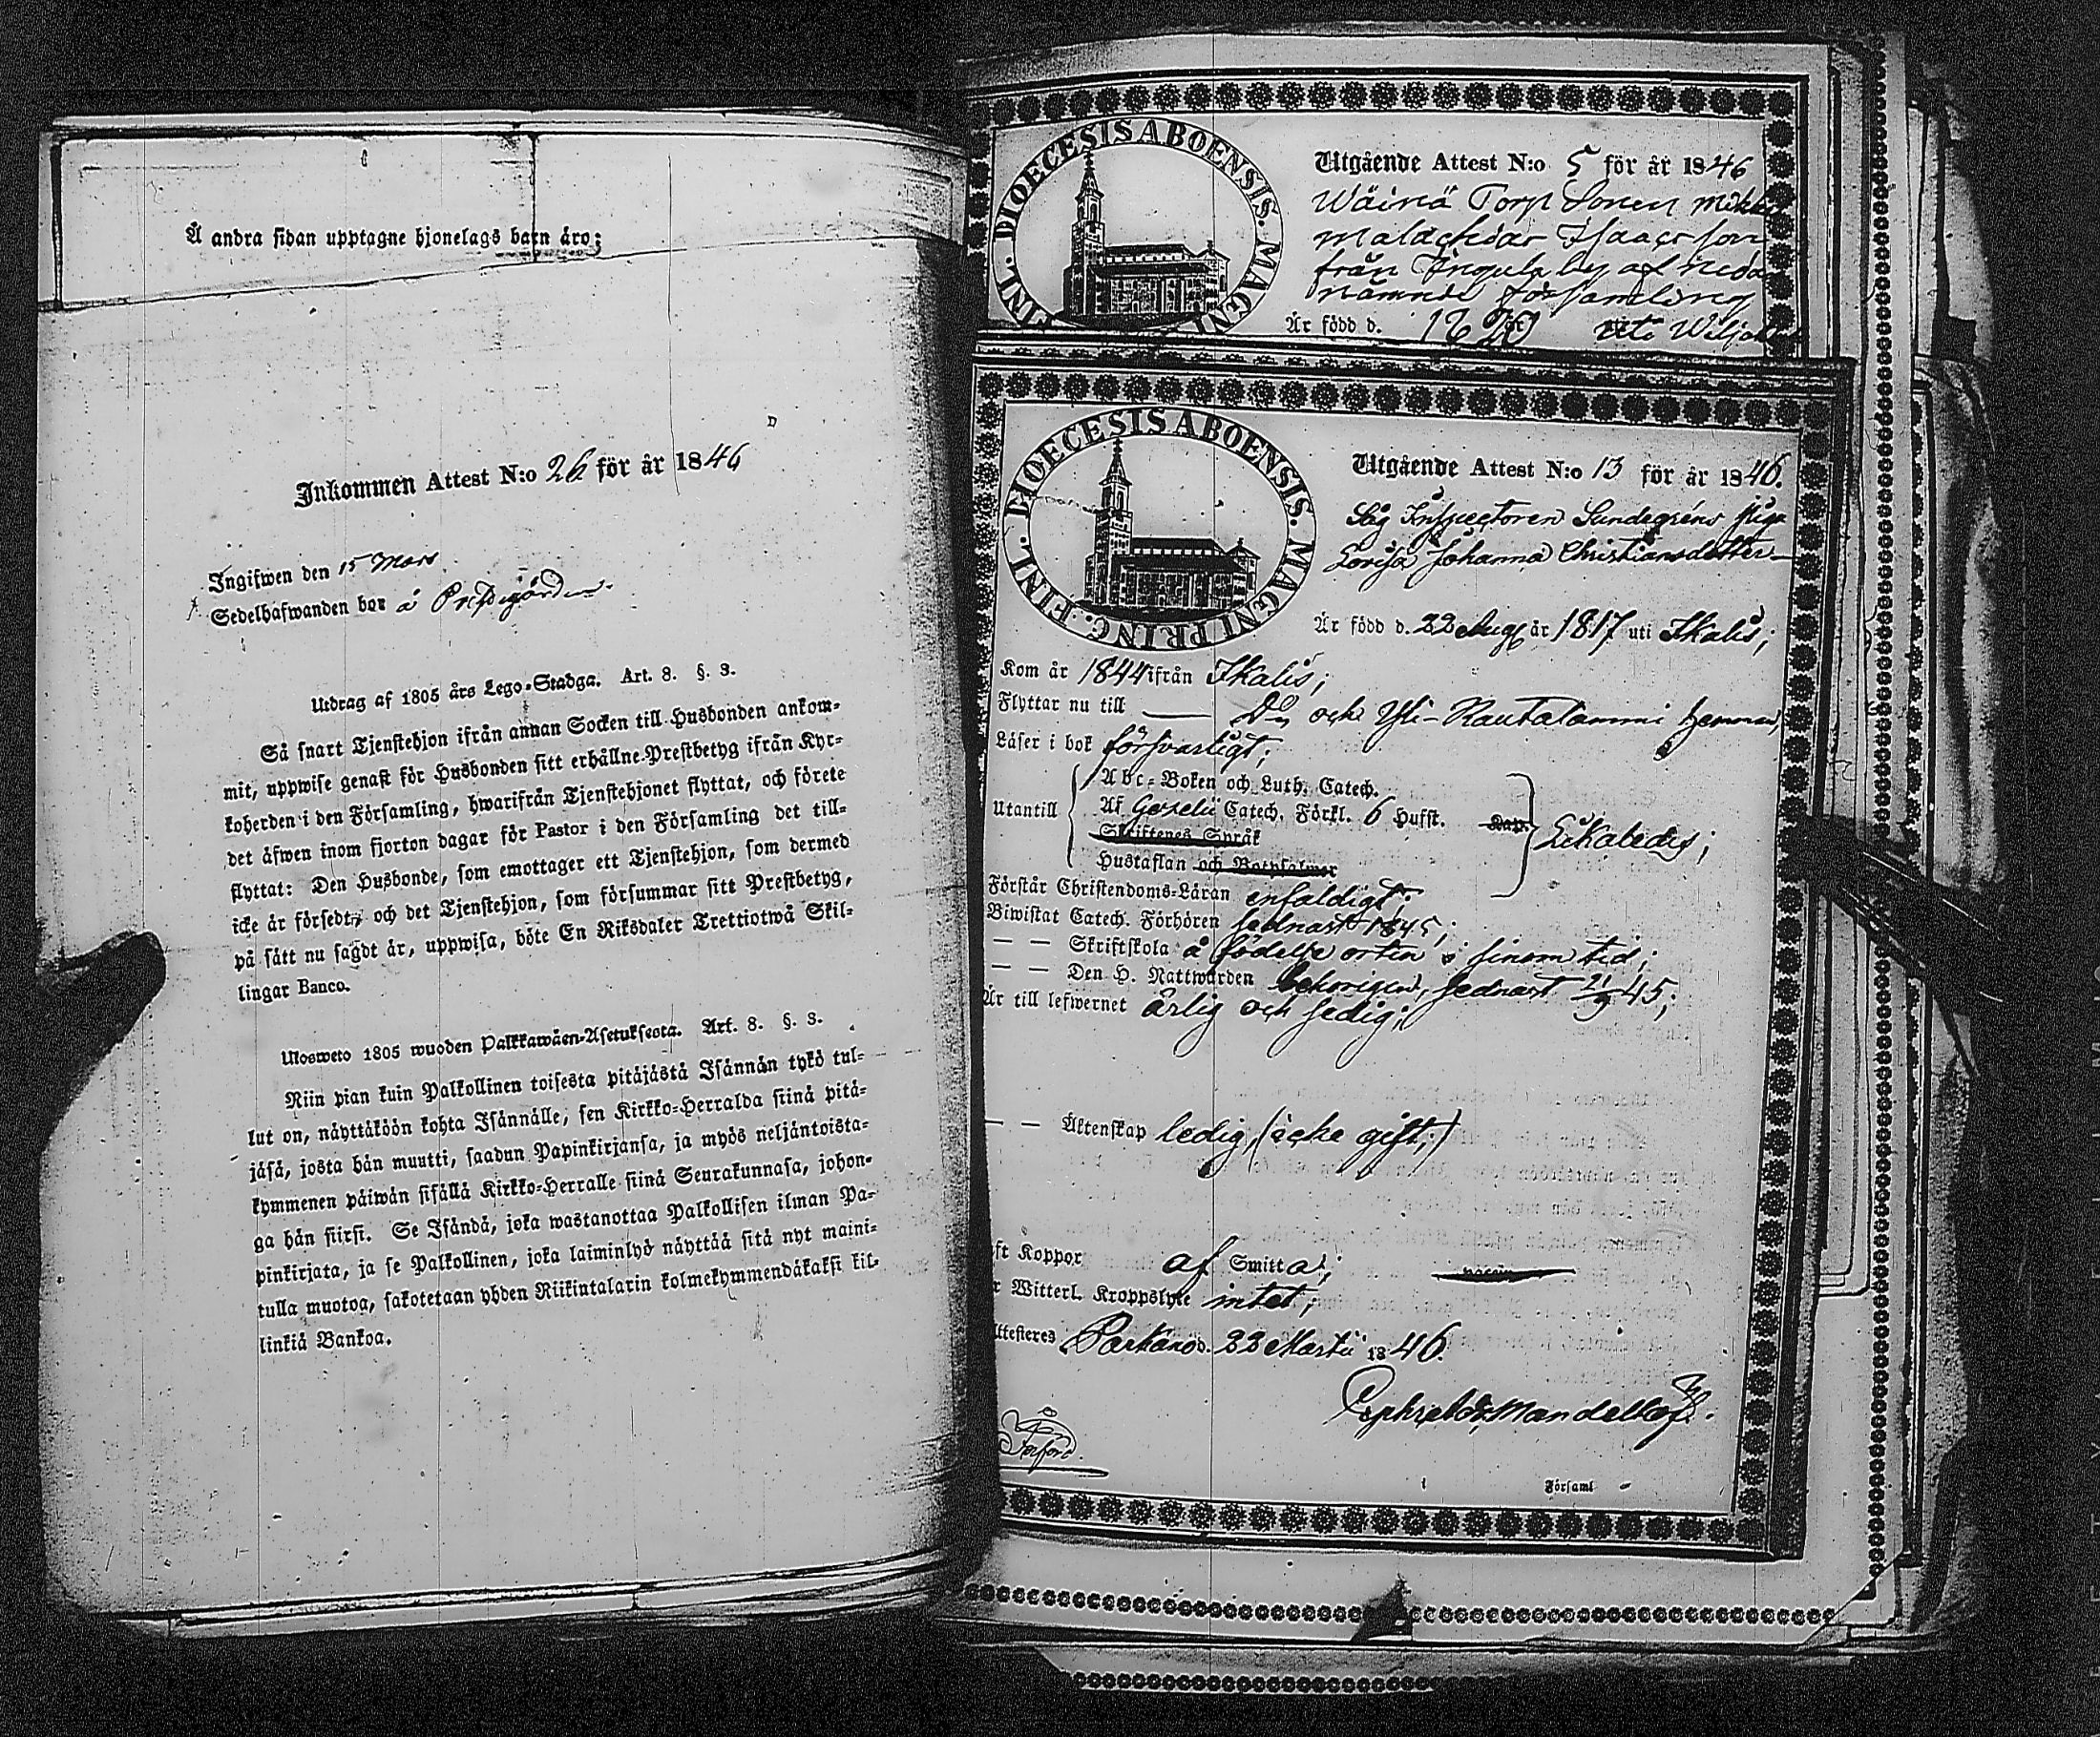 Å andra sidan upptagne hjonelags barn äro;
Inkommen Attest N:o 26 för år 1846
Ingifwen den 15 Mars
Sedelhafwanden bor å
Utdrag af 1805 års Lego-Stadga. Art. 8. §. 3.
Så snart Tjenstehjon ifrån annan Socken till Husbonden ankom-
mit, uppwise genast för Husbonden sitt erhållne Prestbetyg ifrån Kyr-
koherden i den Församling, hwarifrån Tjenstehjonet flyttat, och förete
det äfwen inom fjorton dagar för Pastor i den Församling det till-
flyttat: Den Husbonde, som emottager ett Tjenstehjon, som dermed
icke är försedt, och det Tjenstehjon, som försummar sitt Prestbetyg,
på sätt nu sagdt är, uppwisa, böte En Riksdaler Trettiotwå Skil-
lingar Banco.
Ulosweto 1805 wuoden Palkkawäen-Asetuksesta. Art. 8. §. 3.
Niin pian kuin Palkollinen toisesta pitäjästä Isännän tykö tul-
lut on, näyttäköön kohta Isännälle, sen Kirkko-Herralda siinä pitä-
jäsä, josta hän muutti, saadun Papinkirjansa, ja myös neljäntoista-
kymmenen päiwän sisällä Kirkko-Herralle siinä Seurakunnasa, johon-
ga hän siirsi. Se Isändä, joka wastanottaa Palkollisen ilman Pa-
pinkirjata, ja se Palkollinen, joka laiminlyö näyttää sitä nyt maini-
tulla muotoa, sakotetaan yhden Riikintalarin kolmekymmendäkaksi kil-
linkiä Bankoa.
DIOECESIS ABOENSIS. MAGNI FINL.
Utgående Attest N:o 5 för år 1846
Wäinä Torp Sonen
Isaacsson
från by af
nämnde församling
Är född d. 1820 uti
DIOECESIS ABOENSIS. MAGNI PRINC. FINL.
Utgående Attest N:o 13 för år 1846.
Såg Inspectoren Sundegréns piga
Lovisa Johanna Christiansdotter
Är född d. 22 Aug år 1817 uti Ikalis;
Kom år 1844 ifrån Ikalis;
Flyttar nu till och Yli-Rautalammi hemman,
Läser i bok försvarligt;
Utantill
Abc-Boken och Luth. Catech.
Af Gezelii Catech. Förkl. 6 Hufst. Kap.
Skriftenes Språk
Hustaflan och Botpsalmer
Förstår Christendoms-Läran enfaldigt;
Biwistat Catech. Förhören sednast 1845;
— — Skriftskola å födelse orten i sinom tid;
— — Den H. Nattwarden behörigen, sednast 21/9 45;
Är till lefwernet ärlig och sedig;
— — Äktenskap ledig, (icke gift;)
ft Koppor af Smitta;
r Witterl. Kroppslyte intet;
ttesteres Parkano d. 22 Martii 1846.
Församl